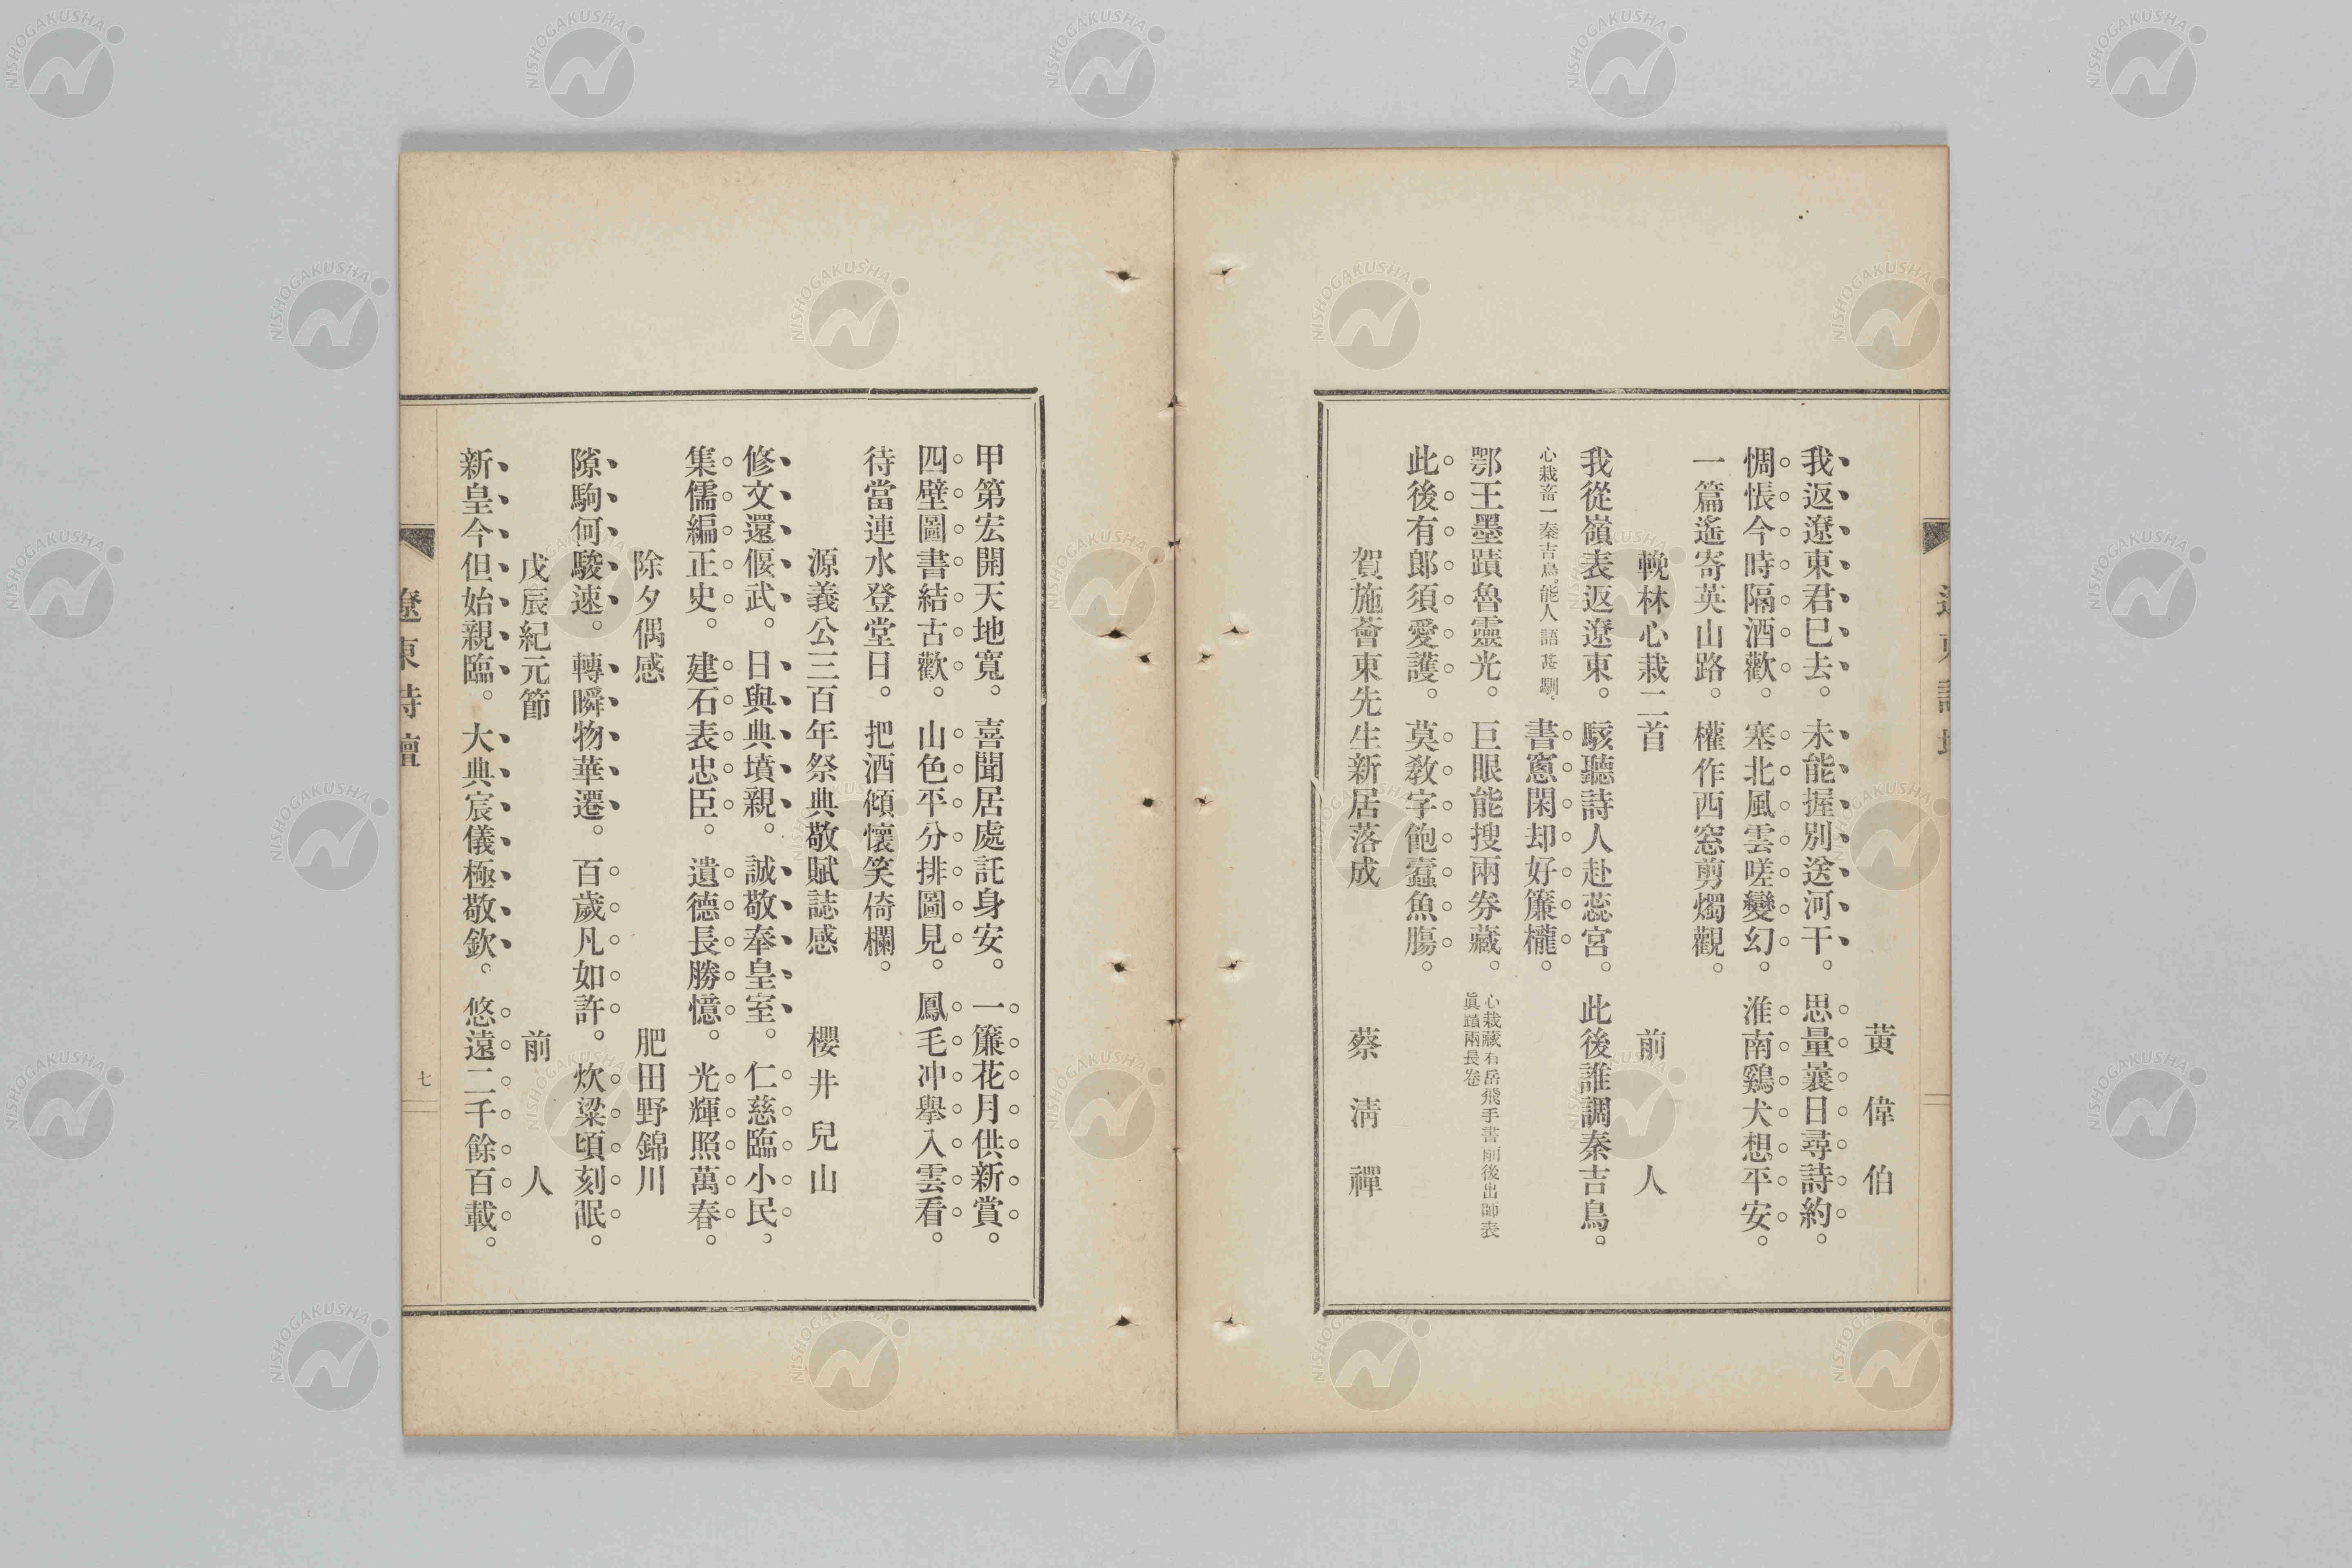 黃偉伯
我返遼東君巳去。未能握別送河干。思量曩日尋詩約。
惆悵今時隔酒歡。塞北風雲嗟變幻。淮南鷄犬想平安。
一篇遙寄英山路。權作西窓剪燭觀。
輓林心栽二首　前人
我從嶺表返遼東。駭聽詩人赴蕊宮。此後誰調秦吉鳥。
心栽畜一秦吉鳥。能人語甚馴。書窻閑却好簾櫳。
鄂王墨蹟魯靈光。巨眼能搜兩券藏。心栽藏有岳飛手書前後出師表
眞蹟兩長卷
此後有郎須愛護。莫敎字飽蠹魚膓。
賀施薈東先生新居落成　蔡淸禪
甲第宏開天地寬。喜聞居處託身安。一簾花月供新賞。
四壁圖書結古歡。山色平分排圖見。鳳毛冲擧入雲看。
待當連水登堂日。把酒傾懷笑倚欄。
源義公三百年祭典敬賦誌感　櫻井兒山
修文還偃武。日與典墳親。誠敬奉皇室。仁慈臨小民。
集儒編正史。建石表忠臣。遺德長勝憶。光輝照萬春。
除夕偶感　肥田野錦川
隙駒何駿速。轉瞬物華遷。百歲凡如許。炊粱頃刻眠。
戊辰紀元節　前人
新皇今但始親臨。大典宸儀極敬欽。悠遠二千餘百載。
遼東詩壇
七
NISHOGAKUSHA